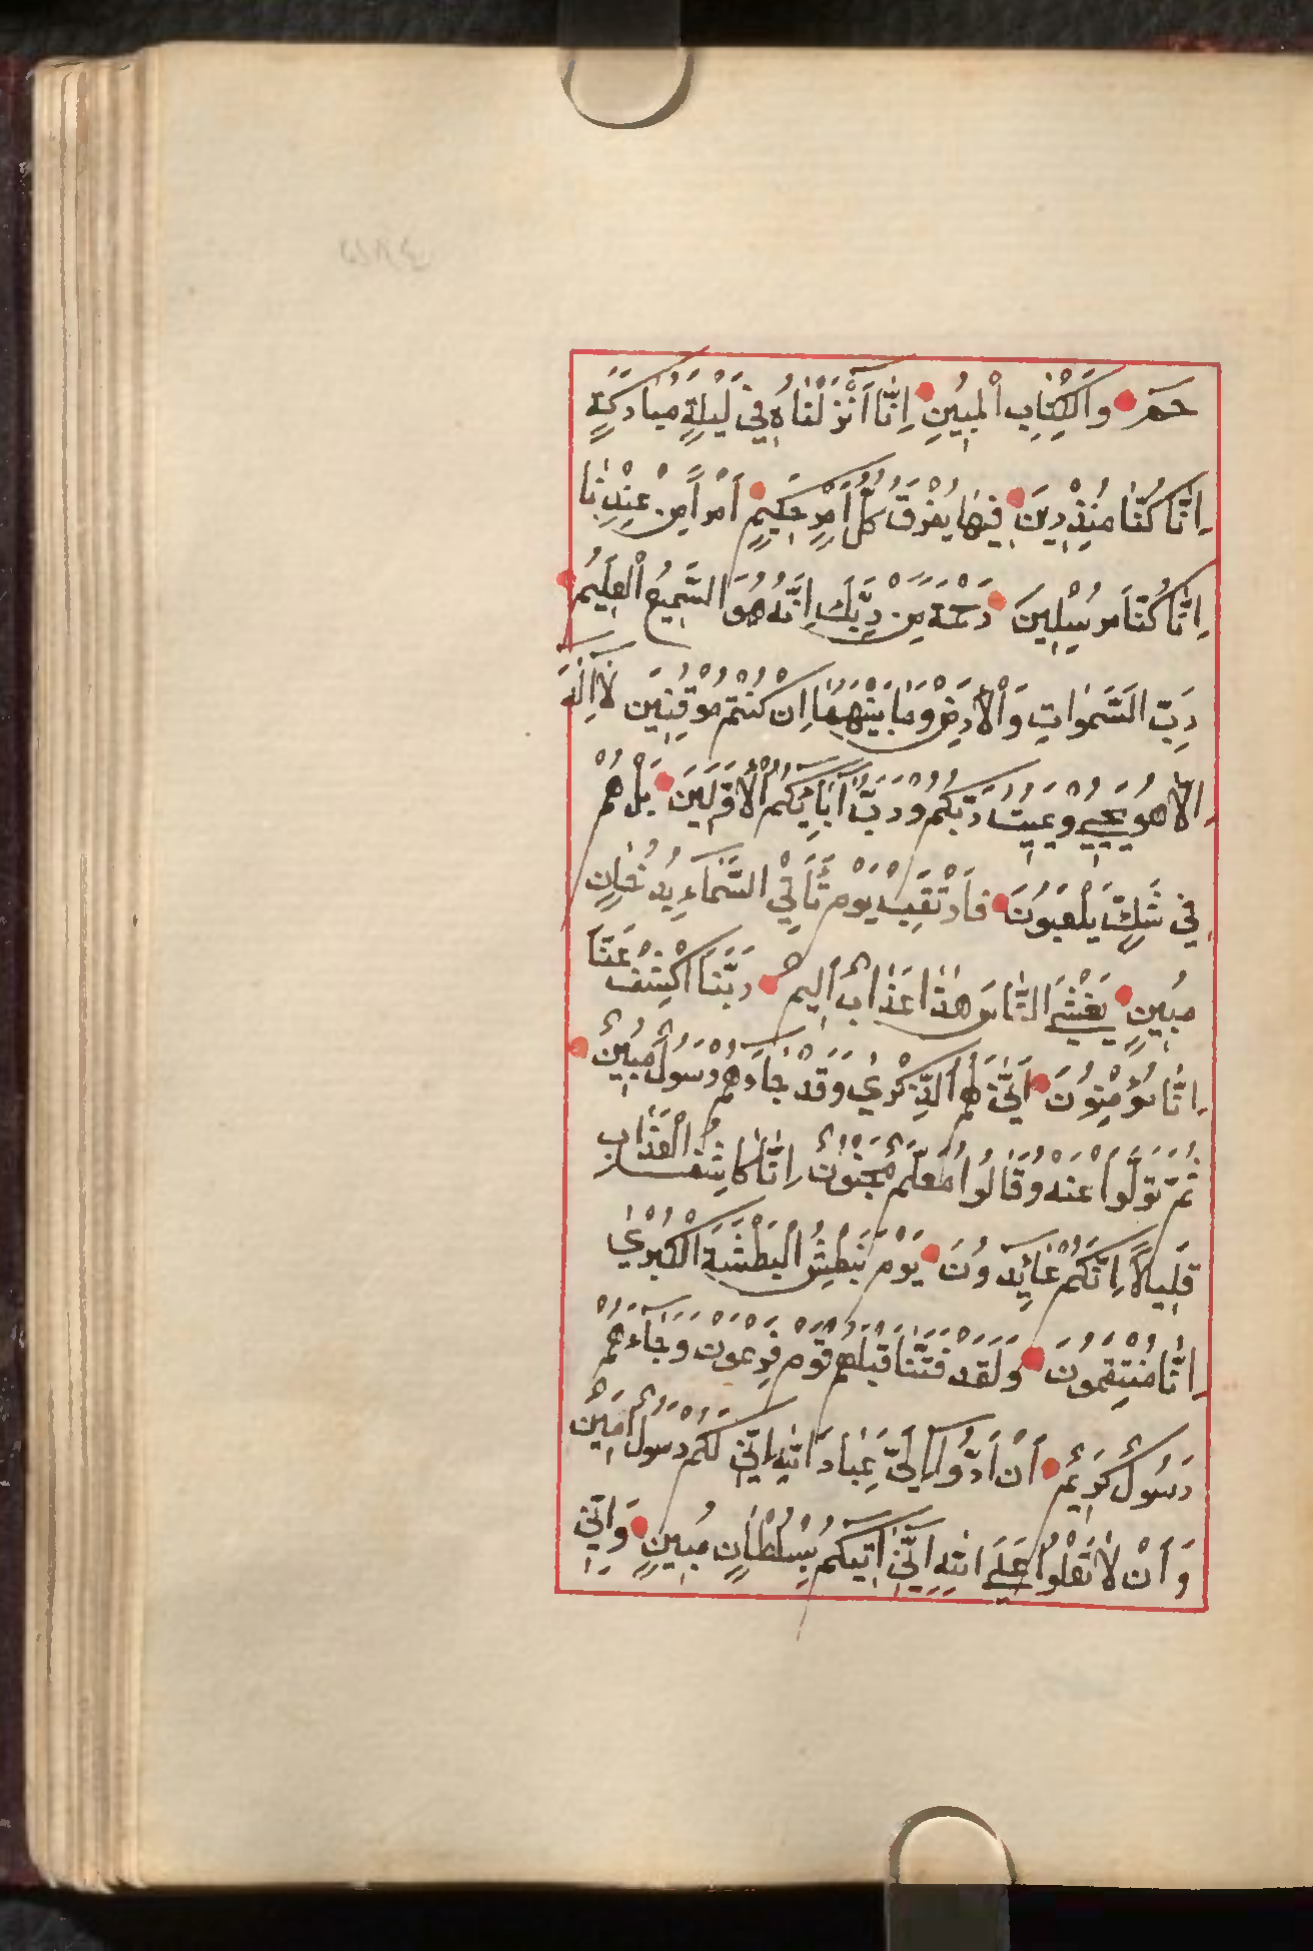 حٰمٓ وَالْكِتَابِ الْمُبِينِ اِنَّا اَنْزَلْنَاهُ فِي لَيْلَةٍ مُبَارَكَةٍ
اِنَّا كُنَّا مُنْذِرِينَ فِيهَا يُفْرَقُ كُلُّ اَمْرٍ حَكِيمٍ اَمْرًا مِنْ عِنْدِنَا
اِنَّا كُنَّا مُرْسِلِينَ رَحْمَةً مِنْ رَبِّكَ اِنَّهُ هُوَ السَّمِيعُ الْعَلِيمُ
رَبِّ السَّمٰوَاتِ وَالْاَرْضِ وَمَا بَيْنَهُمَا اِنْ كُنْتُمْ مُوقِنِينَ لَا اِلٰهَ
اِلَّا هُوَ يُحْيِي وَيُمِيتُ رَبُّكُمْ وَرَبُّ اٰبَائِكُمُ الْاَوَّلِينَ بَلْ هُمْ
فِي شَكٍّ يَلْعَبُونَ فَارْتَقِبْ يَوْمَ تَأْتِي السَّمَاءُ بِدُخَانٍ
مُبِينٍ يَغْشَى النَّاسَ هٰذَا عَذَابٌ اَلِيمٌ رَبَّنَا اكْشِفْ عَنَّا
اِنَّا مُؤْمِنُونَ اَنّٰى لَهُمُ الذِّكْرٰى وَقَدْ جَاءَهُمْ رَسُولٌ مُبِينٌ
ثُمَّ تَوَلَّوْا عَنْهُ وَقَالُوا مُعَلَّمٌ مَجْنُونٌ اِنَّا كَاشِفُوا الْعَذَابِ
قَلِيلًا اِنَّكُمْ عَائِدُونَ يَوْمَ نَبْطِشُ الْبَطْشَةَ الْكُبْرٰى
اِنَّا مُنْتَقِمُونَ وَلَقَدْ فَتَنَّا قَبْلَهُمْ قَوْمَ فِرْعَوْنَ وَجَاءَهُمْ
رَسُولٌ كَرِيمٌ اَنْ اَدُّوا اِلَيَّ عِبَادَ اللهِ اِنِّي لَكُمْ رَسُولٌ اَمِينٌ
وَاَنْ لَا تَعْلُوا عَلَى اللهِ اِنِّي اٰتِيكُمْ بِسُلْطَانٍ مُبِينٍ وَاِنِّي